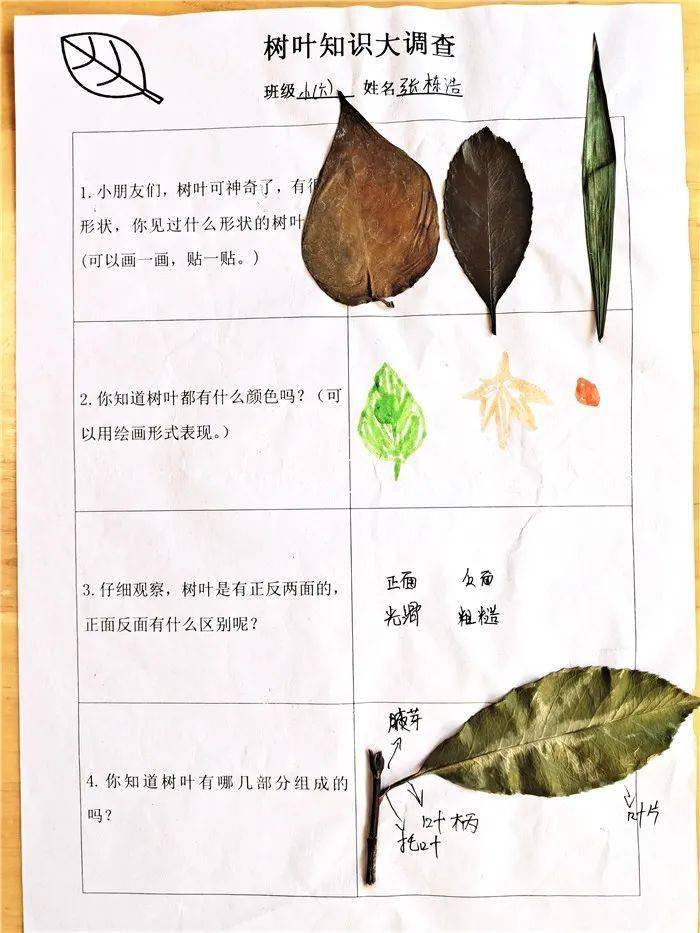 树叶知识大调查
班级小(六) 姓名张栋浩
1.小朋友们，树叶可神奇了，有很
形状，你见过什么形状的树叶
(可以画一画，贴一贴。)
2.你知道树叶都有什么颜色吗？（可
以用绘画形式表现。）
3.仔细观察，树叶是有正反两面的，
正面反面有什么区别呢？
正面 反面
光滑 粗糙
4.你知道树叶有哪几部分组成的
吗？
腋芽
叶柄
托叶
叶片